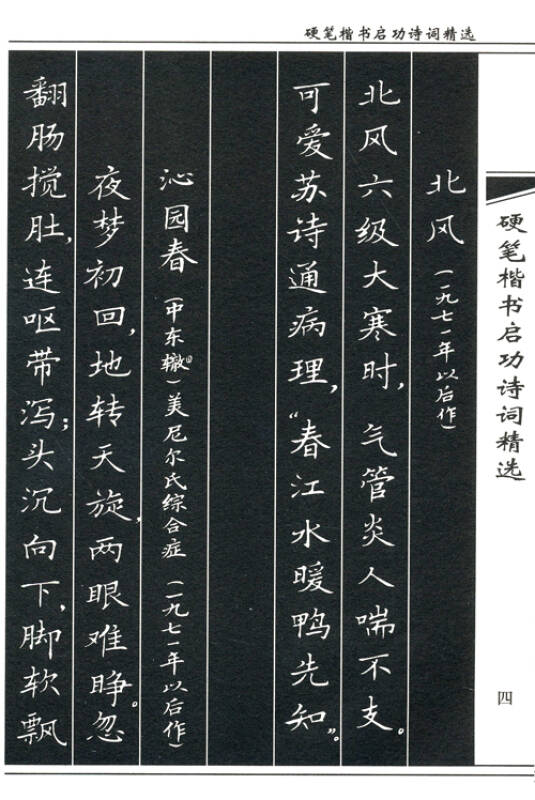 硬笔楷书启功诗词精选
硬笔楷书启功诗词精选
四
北风（一九七一年以后作）
北风六级大寒时，气管炎人喘不支。
可爱苏诗通病理，“春江水暖鸭先知”。
沁园春（中东辙①）美尼尔氏综合症（一九七一年以后作）
夜梦初回，地转天旋，两眼难睁。忽
翻肠搅肚，连呕带泻；头沉向下，脚软飘